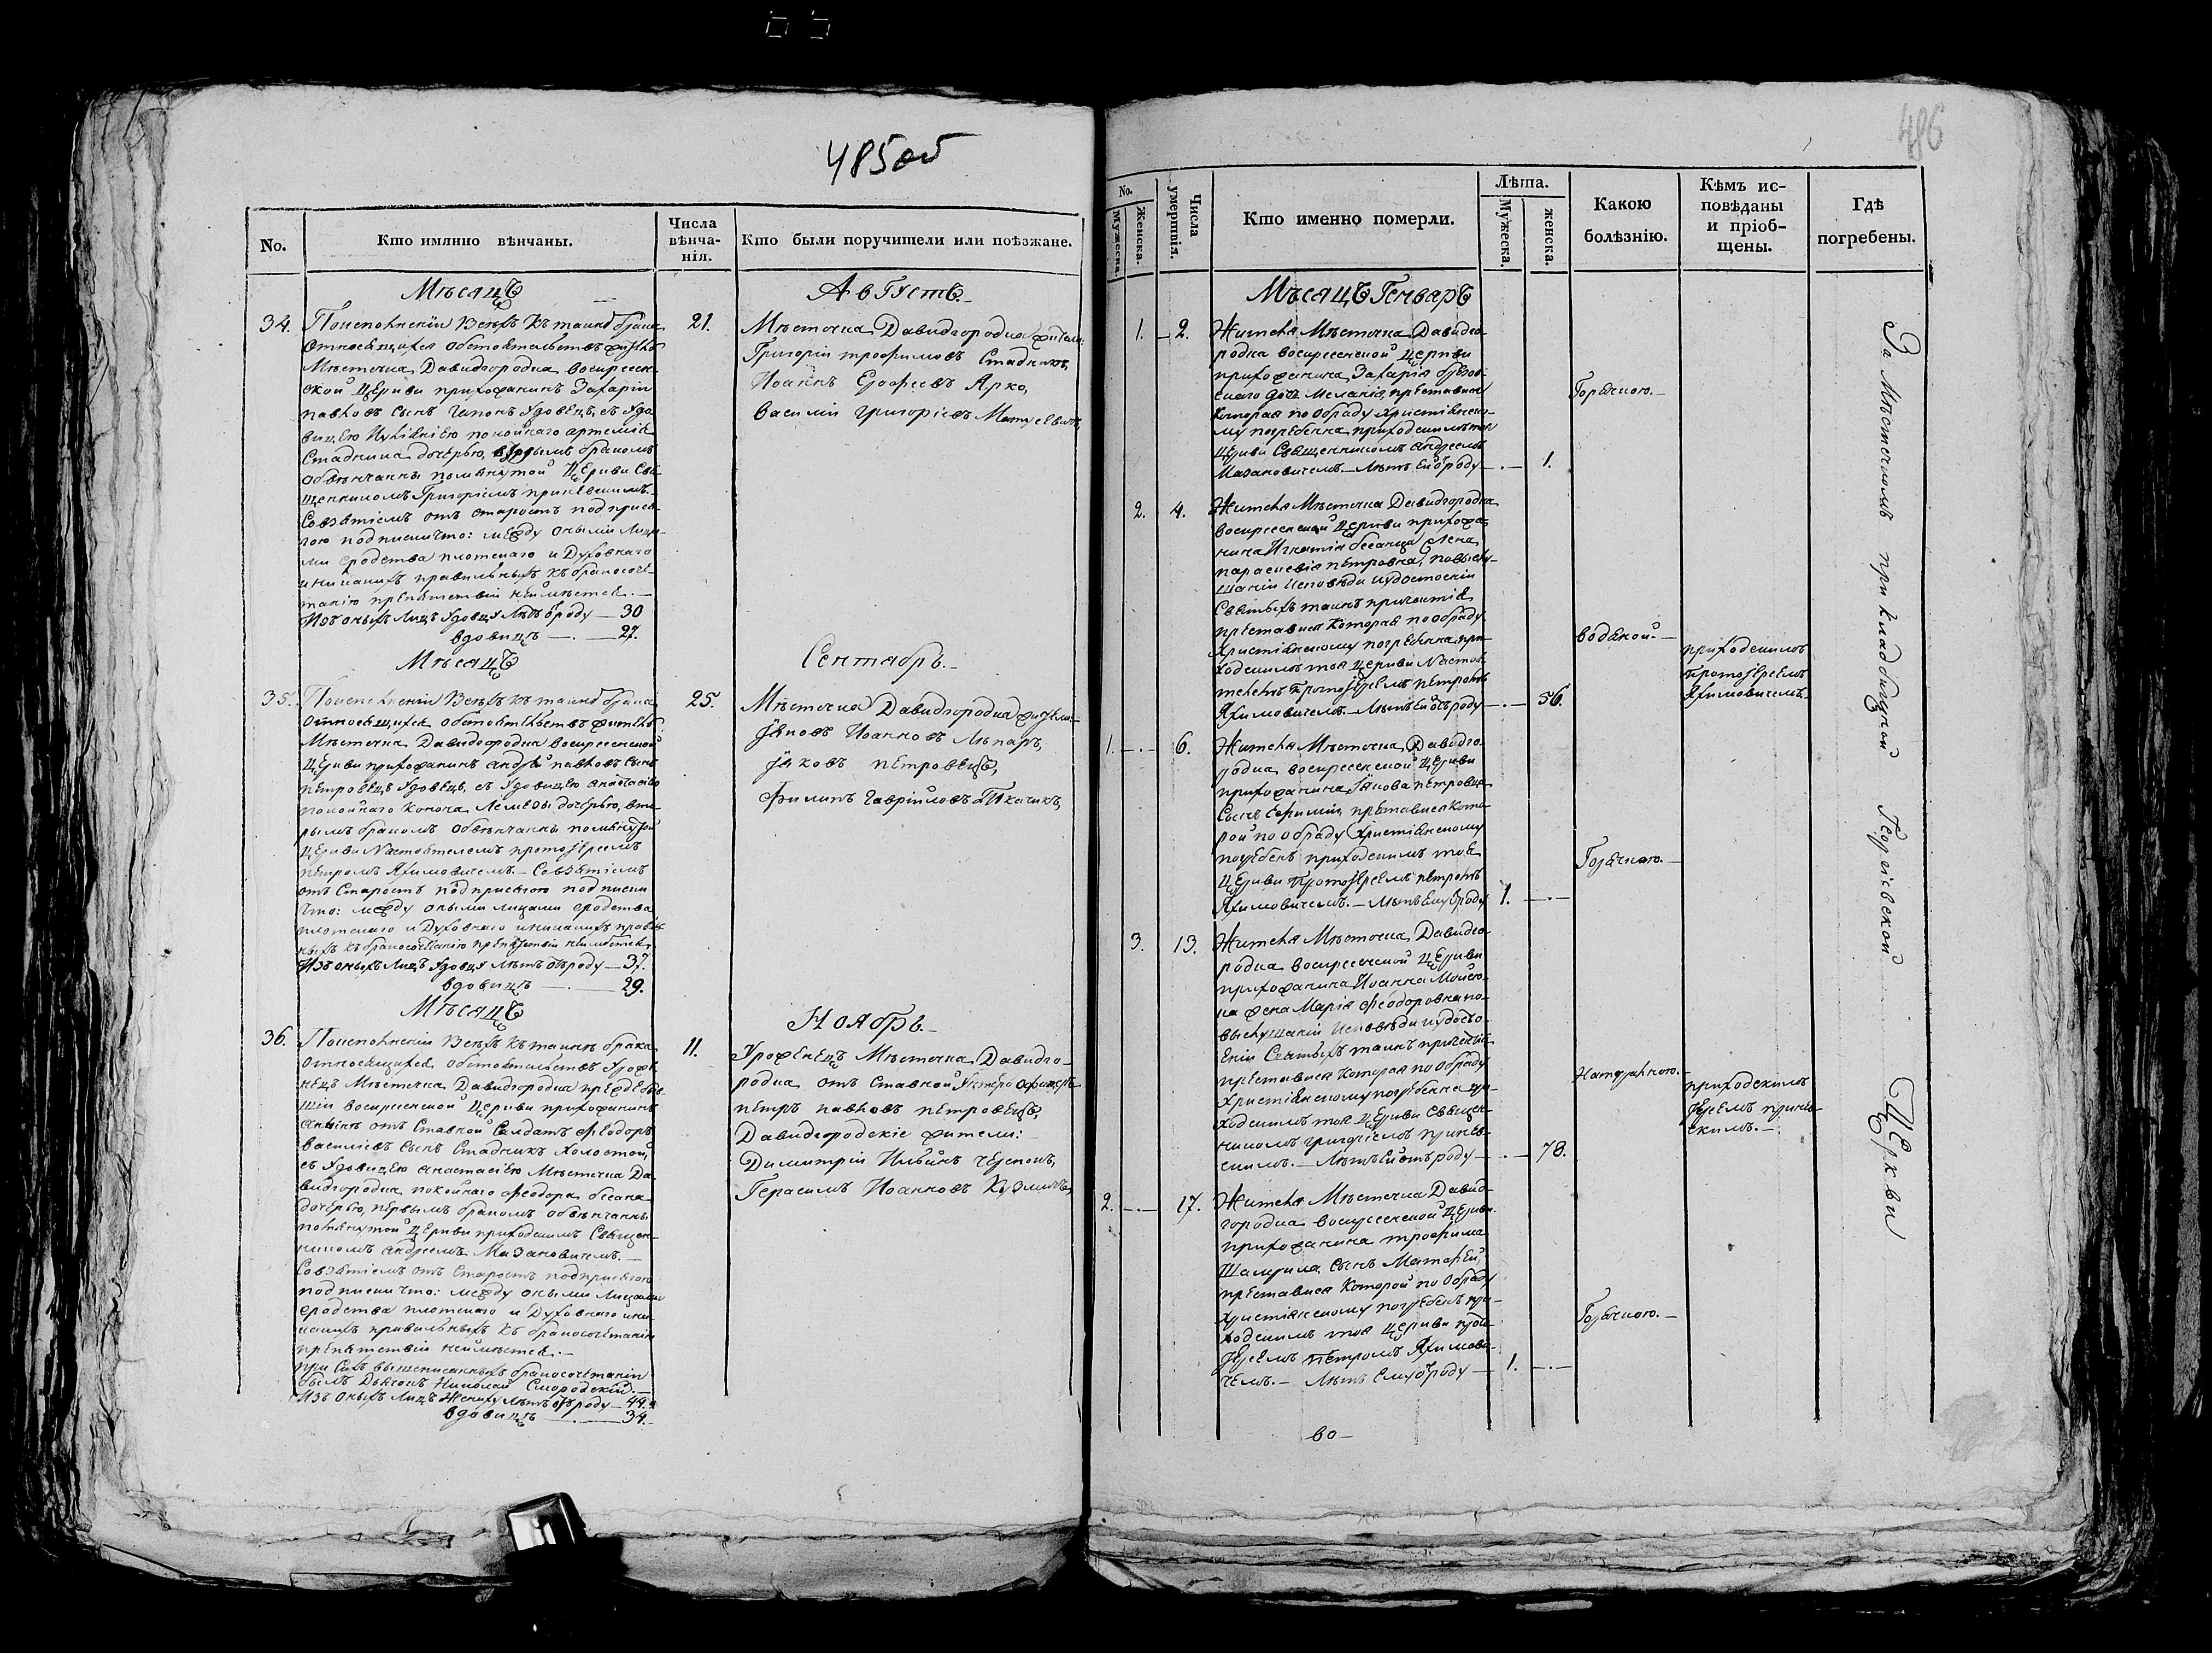 485об
No.
Кто имянно вѣнчаны.
Числа вѣнча-
нія.
Кто были поручители или поѣзжане.
Мѣсяцъ
Августъ.
34.
По исполненіи Всѣхъ къ таинѣ брака
относящихся обстоятельствъ жителѣ
Мѣстечка Давидгородка воскресен-
ской Церкви прихожанинъ Захарій
павловъ сынъ Гапонъ Удовецъ, съ Удо-
вицею покойнаго артемія
Стадника дочерью, бракомъ
обвѣнчаны помянутой Церкви Свя-
щенникомъ Григоріемъ
Совзятіемъ отъ старостъ подприся-
гою подписки что: между оными лица-
ми сродства плотскаго и Духовнаго
и никакихъ правильныхъ къ бракосоче-
танію препятствій неимѣется.—
Изъ оныхъ Лицъ Удовцу Лѣтъ отъ роду — 30
вдовицѣ — 27.
21.
Мѣстечка Давидгородка жители:
Григорій трофимовъ Стадникъ,
Иоаннъ Ерофеевъ Ярко,
Василій григоріевъ Матусевичъ,
Мѣсяцъ
Сентябрь.—
35.
По исполненіи Всѣхъ къ таинѣ брака
относящихся обстоятельствъ жителѣ
Мѣстечка Давидгородка воскресенской
Церкви прихожанинъ андрей павловъ сынъ
петровецъ Удовецъ, съ Удовицею анастасіею
покойнаго Конона дочерью, вто-
рымъ бракомъ обвѣнчаны помянутой
Церкви Настоятелемъ протоіереемъ
петромъ Яхимовичемъ.— Совзятіемъ
отъ Старостъ подприсягою подписки
что: между оными лицами сродства
плотскаго и Духовнаго и никакихъ правиль-
ныхъ къ бракосочетанію препятствій неимѣется.
Изъ оныхъ Лицъ Удовцу Лѣтъ отъ роду — 37.
вдовицѣ — 29.
25.
Мѣстечка Давидгородка жители:
Іяковъ Иоанновъ Лѣнаръ,
Іяковъ петровецъ,
Филипъ Гавріиловъ Ткачикъ,
Мѣсяцъ
Ноябрь.—
36.
По исполненіи Всѣхъ къ таинѣ брака
относящихся обстоятельствъ Уроже-
нецъ Мѣстечка Давидгородка преждебыв-
шій воскресенской Церкви прихожанинъ
отъ Ставной Салдатъ Феодоръ
василіевъ сынъ Стадникъ холостой,
съ Удовицею анастасіею Мѣстечка Да-
видгородка покойнаго Феодора бесана
дочерью, первымъ бракомъ обвѣнчаны
помянутой Церкви приходскимъ Священ-
никомъ андреемъ Мазановичемъ.—
Совзятіемъ отъ Старостъ подприсягою
подписки что: между оными лицами
сродства плотскаго и Духовнаго и ни-
какихъ правильныхъ къ бракосочетанію
препятствій неимѣется.—
при Сихъ вышеписанныхъ бракосочетаніи
былъ Дьячокъ Николай Смородскій.—
Изъ оныхъ Лицъ Жениху Лѣтъ отъ роду — 44.
вдовицѣ — 34.
11.
Уроженецъ Мѣстечка Давидго-
родка отъ Ставной Унтеро офицеръ
петръ павловъ петровецъ,
Давидгородскіе жители:
Димитрій Ильинъ
Герасимъ Иоанновъ Кузмичъ,
486
No.
Мужеска.
Женска.
Числа умершнія.
Кто именно померли.
Лѣта.
Мужеска.
женска.
Какою болѣзнію.
Кѣмъ ис-
повѣданы
и пріоб-
щены.
Гдѣ погребены.
Мѣсяцъ Генварь
1. 2.
Жителя Мѣстечка Давидго-
родка воскресенской Церкви
прихожанина Захарія
дочь Меланія, преставися
Которая по обряду христіянско-
му погребенна приходскимъ тоя
Церкви Священникомъ андреемъ
Мазановичемъ.— Лѣтъ ей отъ роду — 1.
Горячкою.—
2. 4.
Жителя Мѣстечка Давидгородка
воскресенской Церкви прихожа-
нина Игнатія бесанца жена
параскевія петровна, повыслу-
шаніи исповѣди и удостоеніи
Святыхъ таинъ причастія
преставися Которая по обряду
Христіянскому погребенна при-
ходскимъ тоя Церкви Настоя-
телемъ Протоіереемъ петромъ
Яхимовичемъ.— Лѣтъ ей отъ роду — 56.
водяной.—
приходскимъ
Протоіереемъ
Яхимовичемъ.
1. 6.
Жителя Мѣстечка Давидго-
родка воскресенской Церкви
прихожанина Іякова петровца
Сынъ Ефимій, преставися кото-
рой по обряду Христіянскому
погребенъ приходскимъ тоя
Церкви Протоіереемъ петромъ
Яхимовичемъ.— Лѣтъ Ему отъ роду 1.
Горячкою.—
3. 13.
Жителя Мѣстечка Давидго-
родка воскресенской Церкви
прихожанина Иоанна
жена Марія Феодоровна по-
выслушаніи исповѣди и удосто-
еніи Святыхъ таинъ причастія
преставися Которая по обряду
Христіянскому погребенна при-
ходскимъ тоя Церкви Священ-
никомъ григоріемъ
Лѣтъ ей отъ роду — 78.
Натуральною.—
приходскимъ
Іереемъ
2. 17.
Жителя Мѣстечка Давид-
городка воскресенской Церкви
прихожанина трофима
Шамрила Сынъ Матфей,
преставися Которой по обряду
Христіянскому погребенъ при-
ходскимъ тоя Церкви прото-
Іереемъ Петромъ Яхимови-
чемъ.— Лѣтъ Ему отъ роду — 1.
Горячкою.—
За Мѣстечкомъ при Кладбищной Георгіевской Церкви
во—